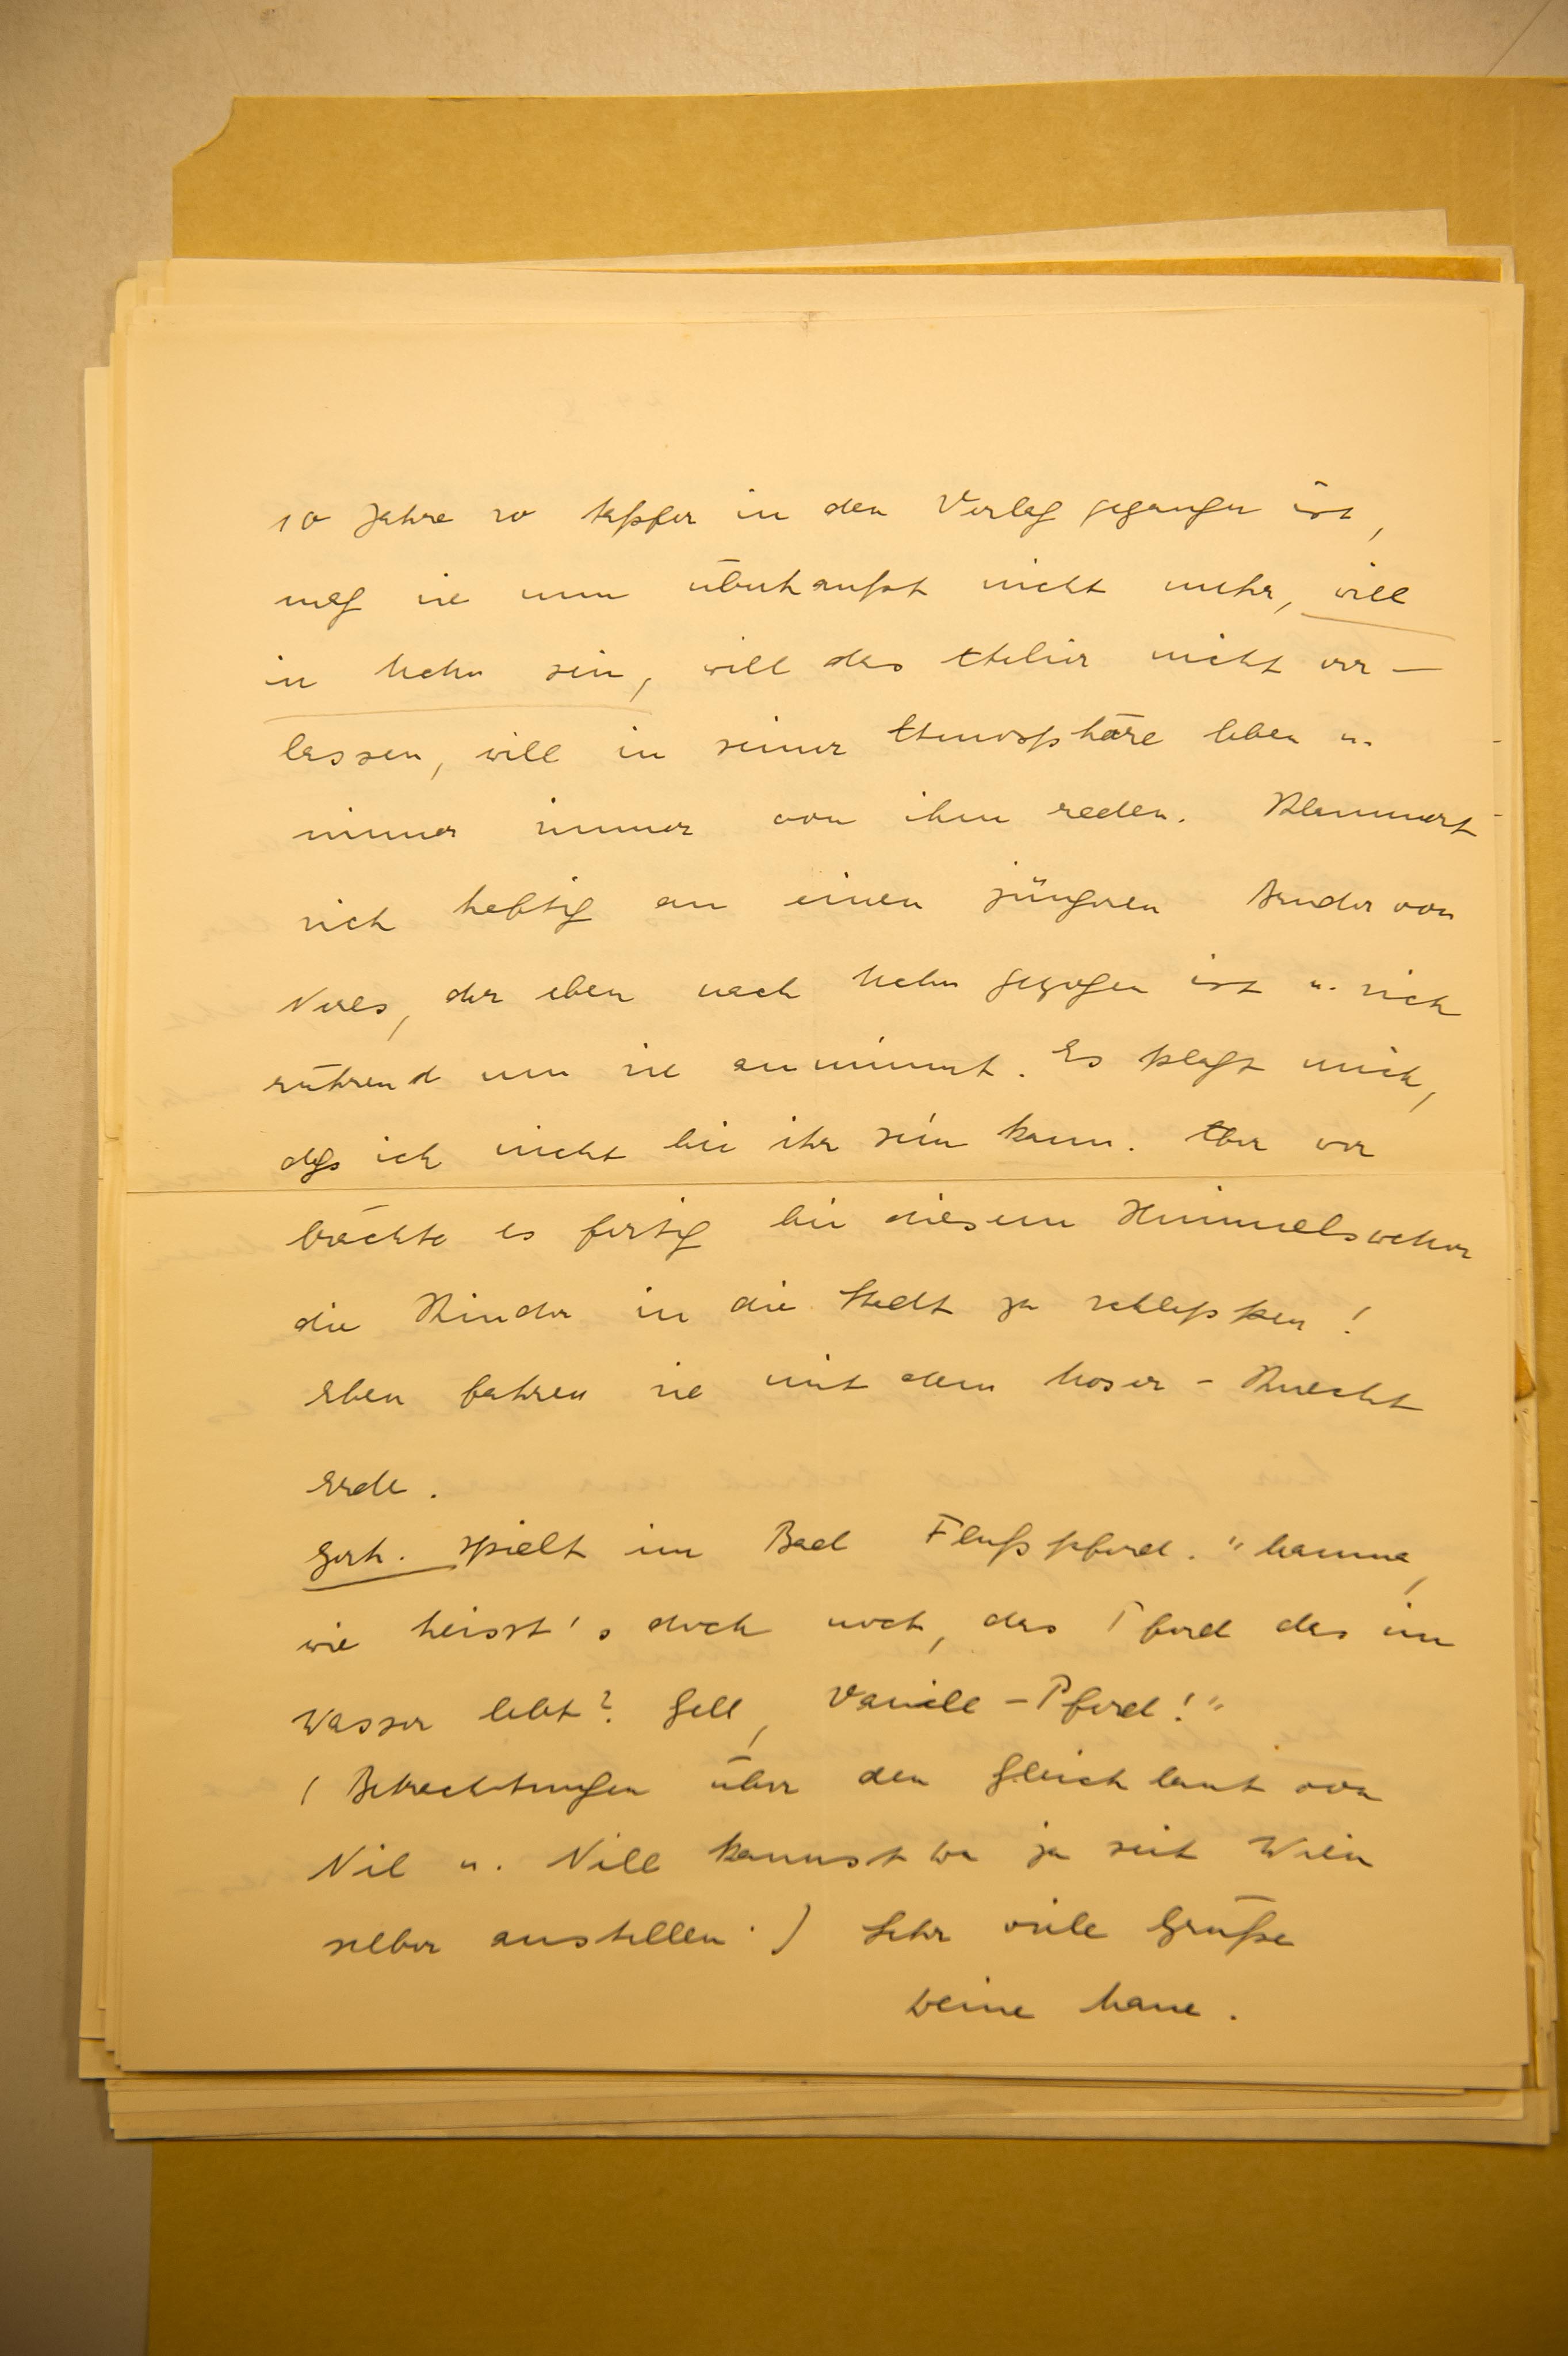 10 Jahre so tapfer in den Verlag gegangen ist,
mag sie nun überhaupt nicht mehr, will
in Mchn sein, will das Atelier nicht ver-
lassen, will in seiner Atmosphäre leben u.
immer immer von ihm reden. Klammert
sich heftig an einen jüngeren Bruder von
Neres, der eben nach Mchn gezogen ist u. sich
rührend um sie annimmt. Es plagt mich,
dass ich nicht bei ihr sein kann. Aber wer
brächte es fertig bei diesem Himmelswetter
die Kinder in die Stadt zu schleppen!
Eben fahren sie mit dem Moser-Knecht
Erde.
Gert. spielt im Bad Flußpferd. "Mamma,
wie heisst's doch noch, das Pferd das im
Wasser lebt? Gell, Vanill-Pferd!"
(Betrachtungen über den Gleichlaut von
Nil u. Nill kannst Du ja seit Wien
selber anstellen.) Sehr viele Grüße
Deine